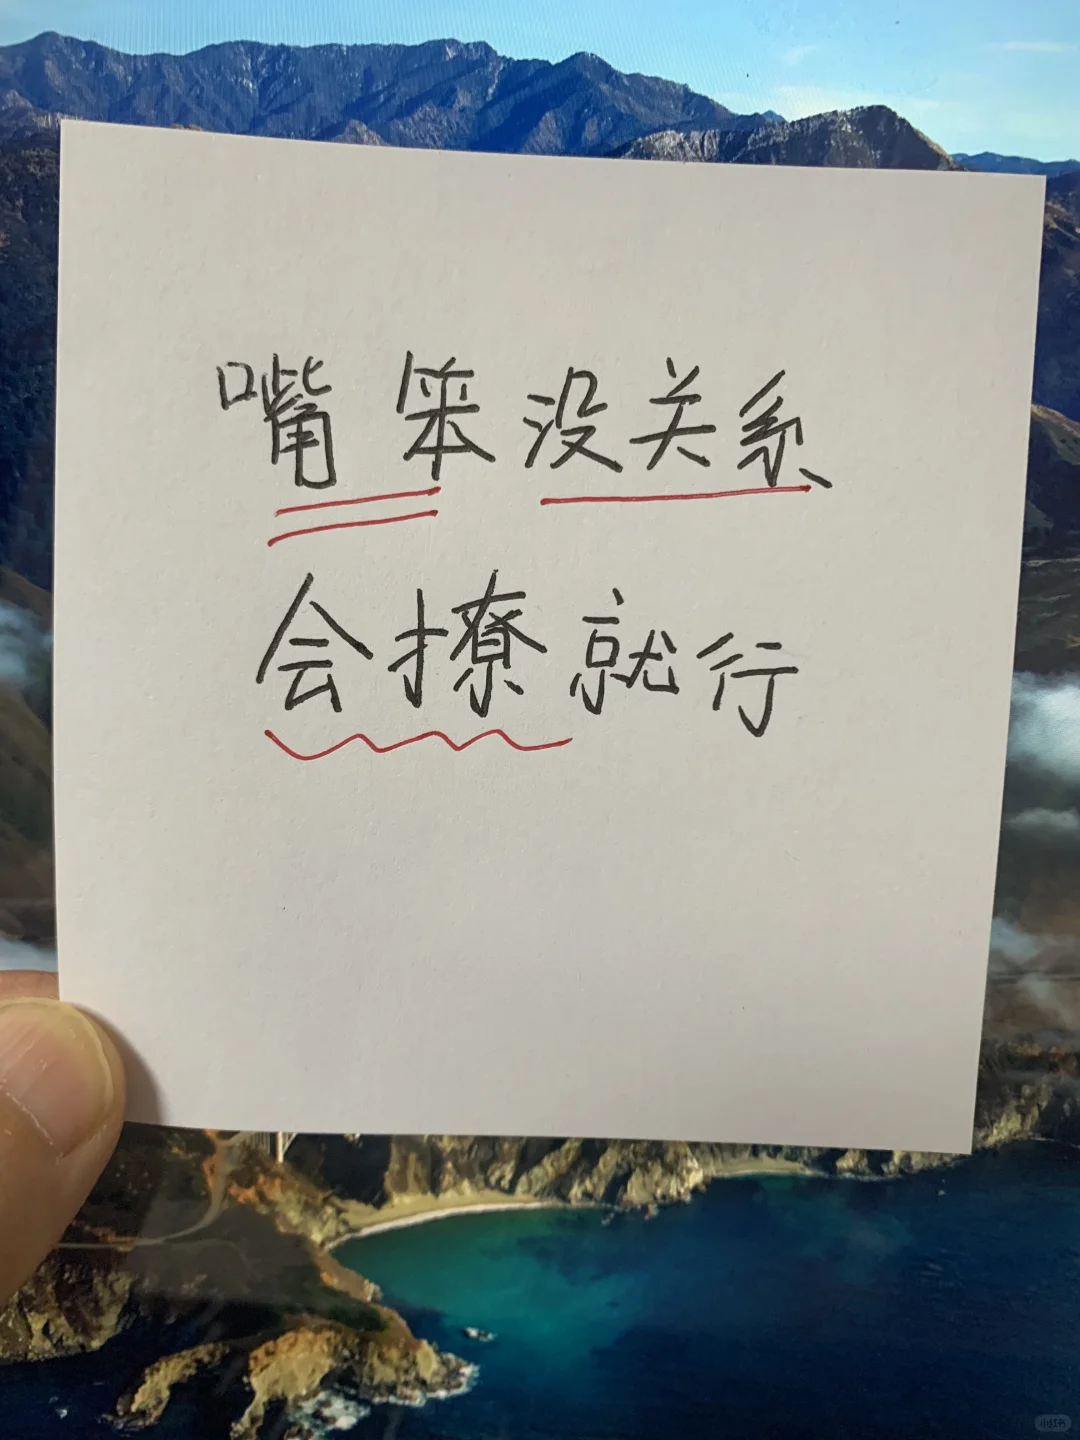 嘴笨没关系
会撩就行
小红书